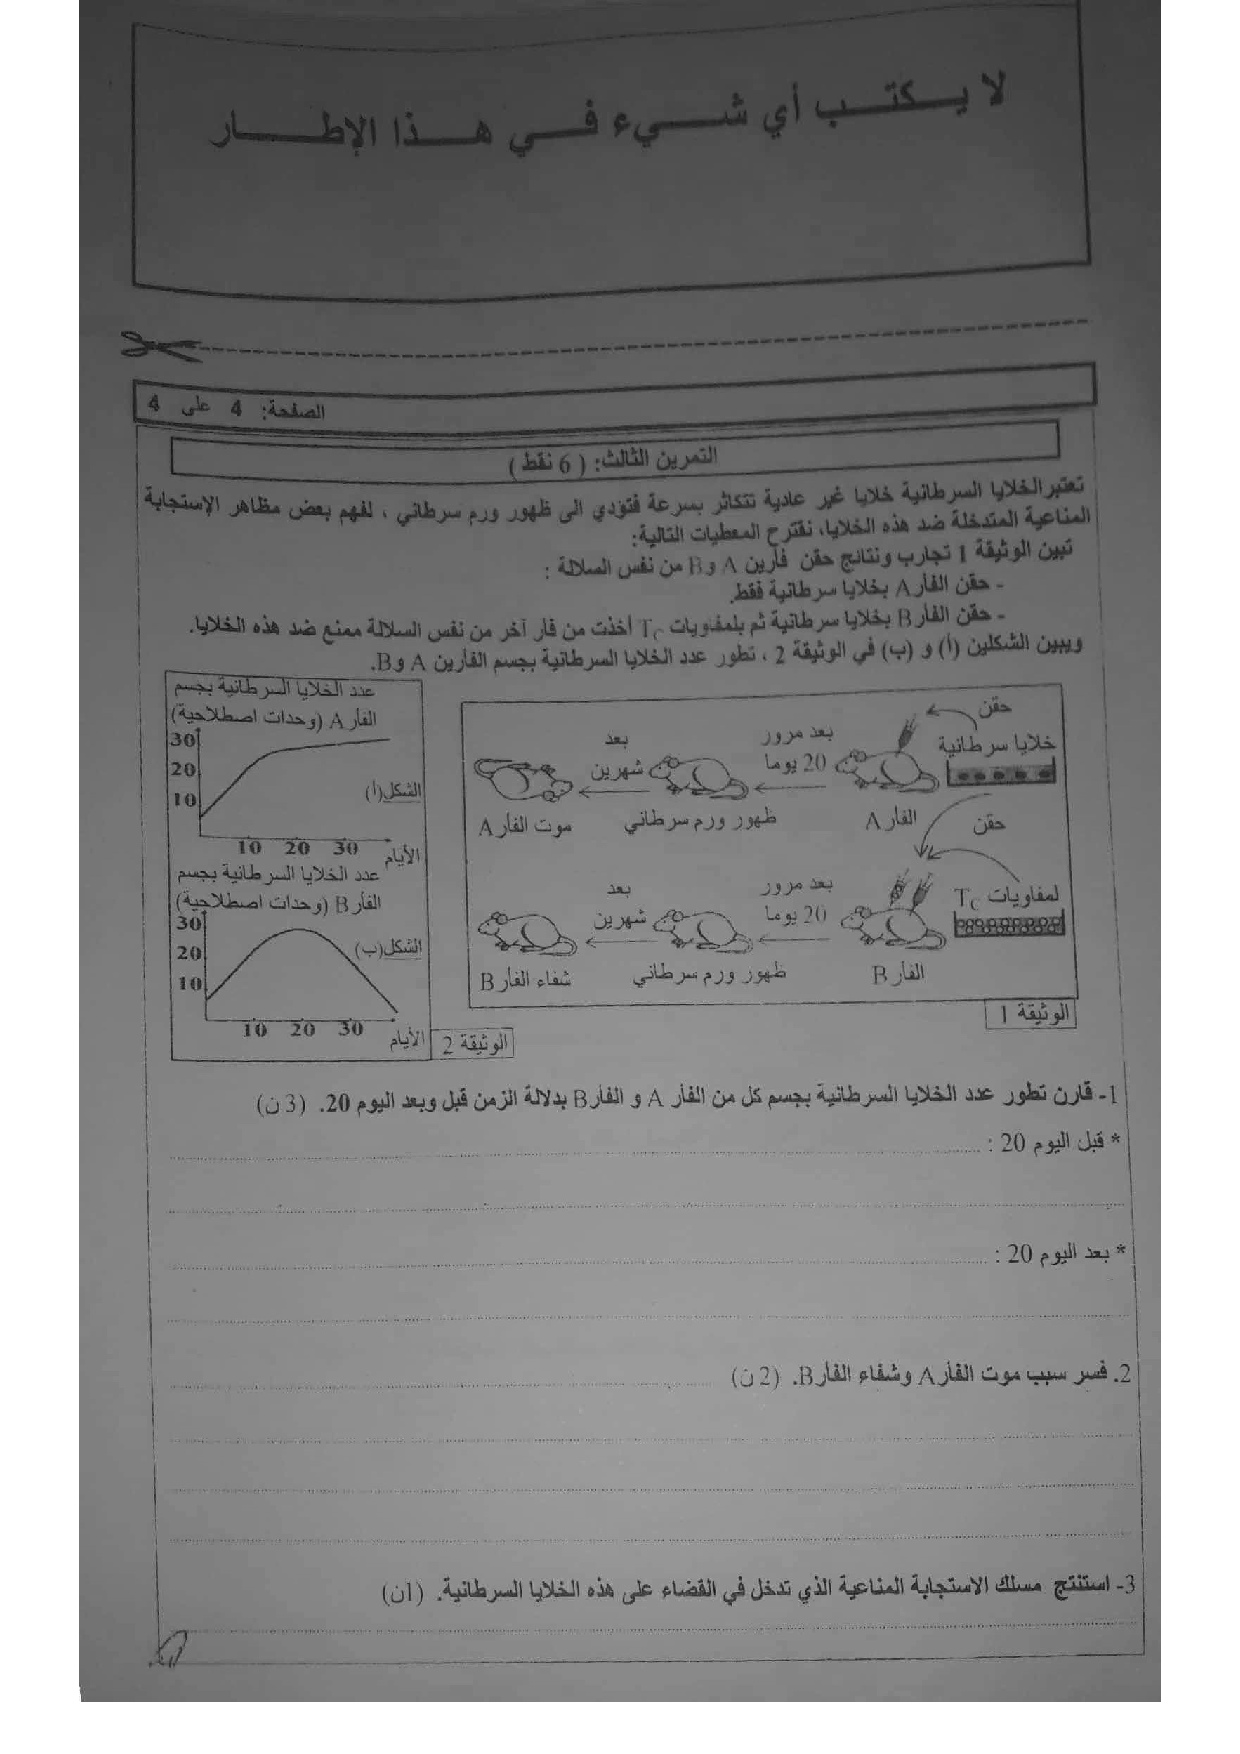 لا يكتب أي شيء في هذا الإطار
الصفحة: 4 على 4
التمرين الثالث: ( 6 نقط )
تعتبر الخلايا السرطانية خلايا غير عادية تتكاثر بسرعة فتؤدي الى ظهور ورم سرطاني ، لفهم بعض مظاهر الإستجابة
المناعية المتدخلة ضد هذه الخلايا، نقترح المعطيات التالية:
تبين الوثيقة 1 تجارب ونتائج حقن فأرين A وB من نفس السلالة :
- حقن الفأر A بخلايا سرطانية فقط.
- حقن الفأر B بخلايا سرطانية ثم بلمفاويات TC أخذت من فأر آخر من نفس السلالة ممنع ضد هذه الخلايا.
ويبين الشكلين (أ) و (ب) في الوثيقة 2 ، تطور عدد الخلايا السرطانية بجسم الفأرين A وB.
حقن
خلايا سرطانية
بعد مرور
20 يوما
بعد
شهرين
الفأر A
ظهور ورم سرطاني
موت الفأر A
حقن
لمفاويات TC
بعد مرور
20 يوما
بعد
شهرين
الفأر B
ظهور ورم سرطاني
شفاء الفأر B
الوثيقة 1
عدد الخلايا السرطانية بجسم
الفأر A (وحدات اصطلاحية)
30
20
10
الشكل(أ)
10 20 30
الأيام
عدد الخلايا السرطانية بجسم
الفأر B (وحدات اصطلاحية)
30
20
10
الشكل(ب)
10 20 30
الأيام
الوثيقة 2
1- قارن تطور عدد الخلايا السرطانية بجسم كل من الفأر A و الفأر B بدلالة الزمن قبل وبعد اليوم 20. (3 ن)
* قبل اليوم 20 :
* بعد اليوم 20 :
2. فسر سبب موت الفأر A وشفاء الفأر B. (2 ن)
3- استنتج مسلك الاستجابة المناعية الذي تدخل في القضاء على هذه الخلايا السرطانية. (1ن)